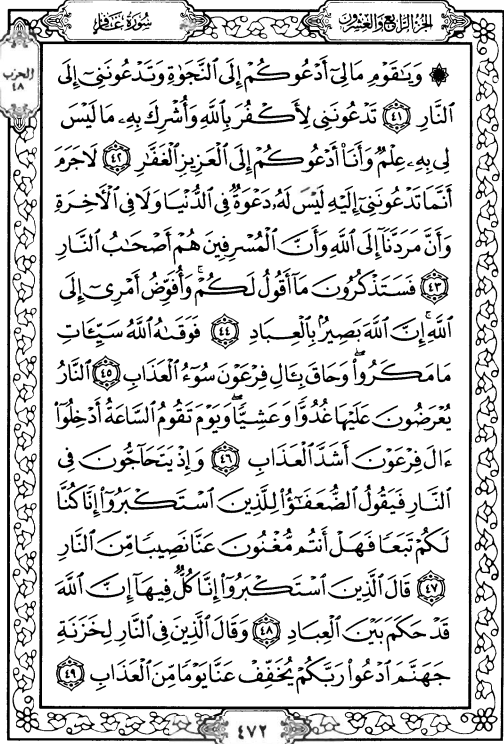 الجزء الرابع والعشرون
سورة غافر
الحزب
٤٨
۞ وَيَٰقَوۡمِ مَا لِيٓ أَدۡعُوكُمۡ إِلَى ٱلنَّجَوٰةِ وَتَدۡعُونَنِيٓ إِلَى
ٱلنَّارِ ٤١ تَدۡعُونَنِي لِأَكۡفُرَ بِٱللَّهِ وَأُشۡرِكَ بِهِۦ مَا لَيۡسَ
لِي بِهِۦ عِلۡمٞ وَأَنَا۠ أَدۡعُوكُمۡ إِلَى ٱلۡعَزِيزِ ٱلۡغَفَّٰرِ ٤٢ لَا جَرَمَ
أَنَّمَا تَدۡعُونَنِيٓ إِلَيۡهِ لَيۡسَ لَهُۥ دَعۡوَةٞ فِي ٱلدُّنۡيَا وَلَا فِي ٱلۡأٓخِرَةِ
وَأَنَّ مَرَدَّنَآ إِلَى ٱللَّهِ وَأَنَّ ٱلۡمُسۡرِفِينَ هُمۡ أَصۡحَٰبُ ٱلنَّارِ
٤٣ فَسَتَذۡكُرُونَ مَآ أَقُولُ لَكُمۡۚ وَأُفَوِّضُ أَمۡرِيٓ إِلَى
ٱللَّهِۚ إِنَّ ٱللَّهَ بَصِيرُۢ بِٱلۡعِبَادِ ٤٤ فَوَقَىٰهُ ٱللَّهُ سَيِّـَٔاتِ
مَا مَكَرُواْۖ وَحَاقَ بِـَٔالِ فِرۡعَوۡنَ سُوٓءُ ٱلۡعَذَابِ ٤٥ ٱلنَّارُ
يُعۡرَضُونَ عَلَيۡهَا غُدُوّٗا وَعَشِيّٗاۖ وَيَوۡمَ تَقُومُ ٱلسَّاعَةُ أَدۡخِلُوٓاْ
ءَالَ فِرۡعَوۡنَ أَشَدَّ ٱلۡعَذَابِ ٤٦ وَإِذۡ يَتَحَآجُّونَ فِي
ٱلنَّارِ فَيَقُولُ ٱلضُّعَفَٰٓؤُاْ لِلَّذِينَ ٱسۡتَكۡبَرُوٓاْ إِنَّا كُنَّا
لَكُمۡ تَبَعٗا فَهَلۡ أَنتُم مُّغۡنُونَ عَنَّا نَصِيبٗا مِّنَ ٱلنَّارِ
٤٧ قَالَ ٱلَّذِينَ ٱسۡتَكۡبَرُوٓاْ إِنَّا كُلّٞ فِيهَآ إِنَّ ٱللَّهَ
قَدۡ حَكَمَ بَيۡنَ ٱلۡعِبَادِ ٤٨ وَقَالَ ٱلَّذِينَ فِي ٱلنَّارِ لِخَزَنَةِ
جَهَنَّمَ ٱدۡعُواْ رَبَّكُمۡ يُخَفِّفۡ عَنَّا يَوۡمٗا مِّنَ ٱلۡعَذَابِ ٤٩
٤٧٢